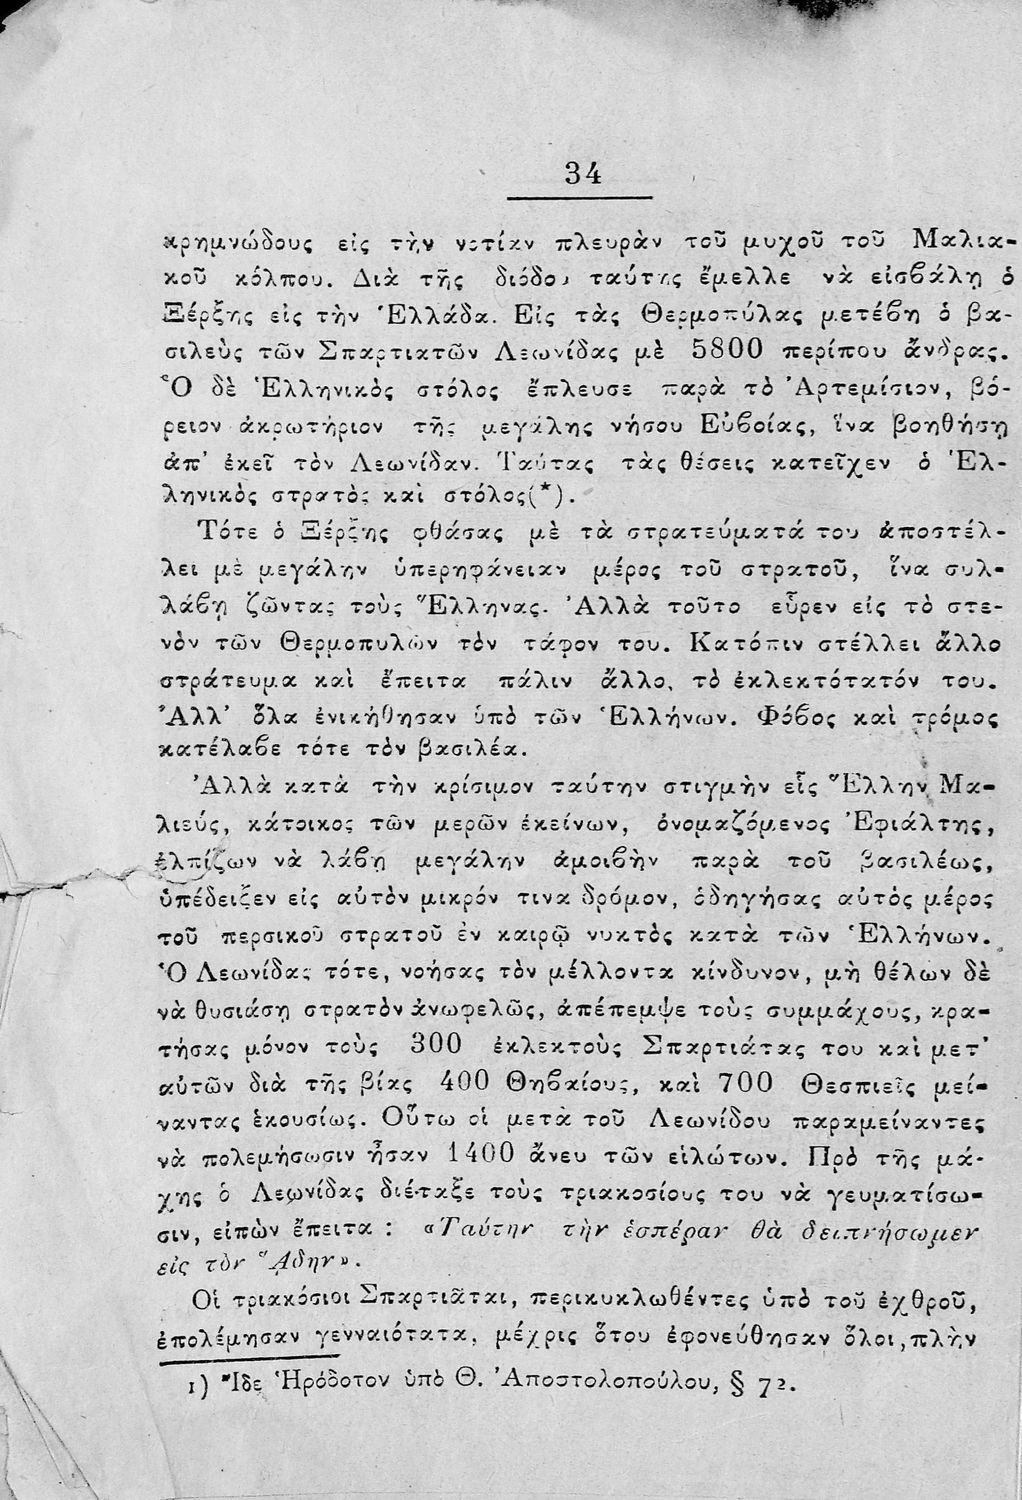 34
κρημνώδους εἰς τὴν νοτίαν πλευρὰν τοῦ μυχοῦ τοῦ Μαλια-
κοῦ κόλπου. Διὰ τῆς διόδου ταύτης ἔμελλε νὰ εἰσβάλῃ ὁ
Ξέρξης εἰς τὴν Ἑλλάδα. Εἰς τὰς Θερμοπύλας μετέβη ὁ βα-
σιλεὺς τῶν Σπαρτιατῶν Λεωνίδας μὲ 5800 περίπου ἄνδρας.
Ὁ δὲ Ἑλληνικὸς στόλος ἔπλευσε παρὰ τὸ Ἀρτεμίσιον, βό-
ρειον ἀκρωτήριον τῆς μεγάλης νήσου Εὐβοίας, ἵνα βοηθήσῃ
ἀπ’ ἐκεῖ τὸν Λεωνίδαν. Ταύτας τὰς θέσεις κατεῖχεν ὁ Ἑλ-
ληνικὸς στρατὸς καὶ στόλος(*).
Τότε ὁ Ξέρξης φθάσας μὲ τὰ στρατεύματά του ἀποστέλ-
λει μὲ μεγάλην ὑπερηφάνειαν μέρος τοῦ στρατοῦ, ἵνα συλ-
λάβῃ ζῶντας τοὺς Ἕλληνας. Ἀλλὰ τοῦτο εὗρεν εἰς τὸ στε-
νὸν τῶν Θερμοπυλῶν τὸν τάφον του. Κατόπιν στέλλει ἄλλο
στράτευμα καὶ ἔπειτα πάλιν ἄλλο, τὸ ἐκλεκτότατόν του.
Ἀλλ’ ὅλα ἐνικήθησαν ὑπὸ τῶν Ἑλλήνων. Φόβος καὶ τρόμος
κατέλαβε τότε τὸν βασιλέα.
Ἀλλὰ κατὰ τὴν κρίσιμον ταύτην στιγμὴν εἷς Ἕλλην Μα-
λιεύς, κάτοικος τῶν μερῶν ἐκείνων, ὀνομαζόμενος Ἐφιάλτης,
ἐλπίζων νὰ λάβῃ μεγάλην ἀμοιβὴν παρὰ τοῦ βασιλέως,
ὑπέδειξεν εἰς αὐτὸν μικρόν τινα δρόμον, ὁδηγήσας αὐτὸς μέρος
τοῦ περσικοῦ στρατοῦ ἐν καιρῷ νυκτὸς κατὰ τῶν Ἑλλήνων.
Ὁ Λεωνίδας τότε, νοήσας τὸν μέλλοντα κίνδυνον, μὴ θέλων δὲ
νὰ θυσιάσῃ στρατὸν ἀνωφελῶς, ἀπέπεμψε τοὺς συμμάχους, κρα-
τήσας μόνον τοὺς 300 ἐκλεκτοὺς Σπαρτιάτας του καὶ μετ’
αὐτῶν διὰ τῆς βίας 400 Θηβαίους, καὶ 700 Θεσπιεῖς μεί-
ναντας ἑκουσίως. Οὕτω οἱ μετὰ τοῦ Λεωνίδου παραμείναντες
νὰ πολεμήσωσιν ἦσαν 1400 ἄνευ τῶν εἱλώτων. Πρὸ τῆς μά-
χης ὁ Λεωνίδας διέταξε τοὺς τριακοσίους του νὰ γευματίσω-
σιν, εἰπὼν ἔπειτα : «Ταύτην τὴν ἑσπέραν θὰ δειπνήσωμεν
εἰς τὸν ᾍδην».
Οἱ τριακόσιοι Σπαρτιᾶται, περικυκλωθέντες ὑπὸ τοῦ ἐχθροῦ,
ἐπολέμησαν γενναιότατα, μέχρις ὅτου ἐφονεύθησαν ὅλοι, πλὴν
1) Ἴδε Ἡρόδοτον ὑπὸ Θ. Ἀποστολοπούλου, § 72.